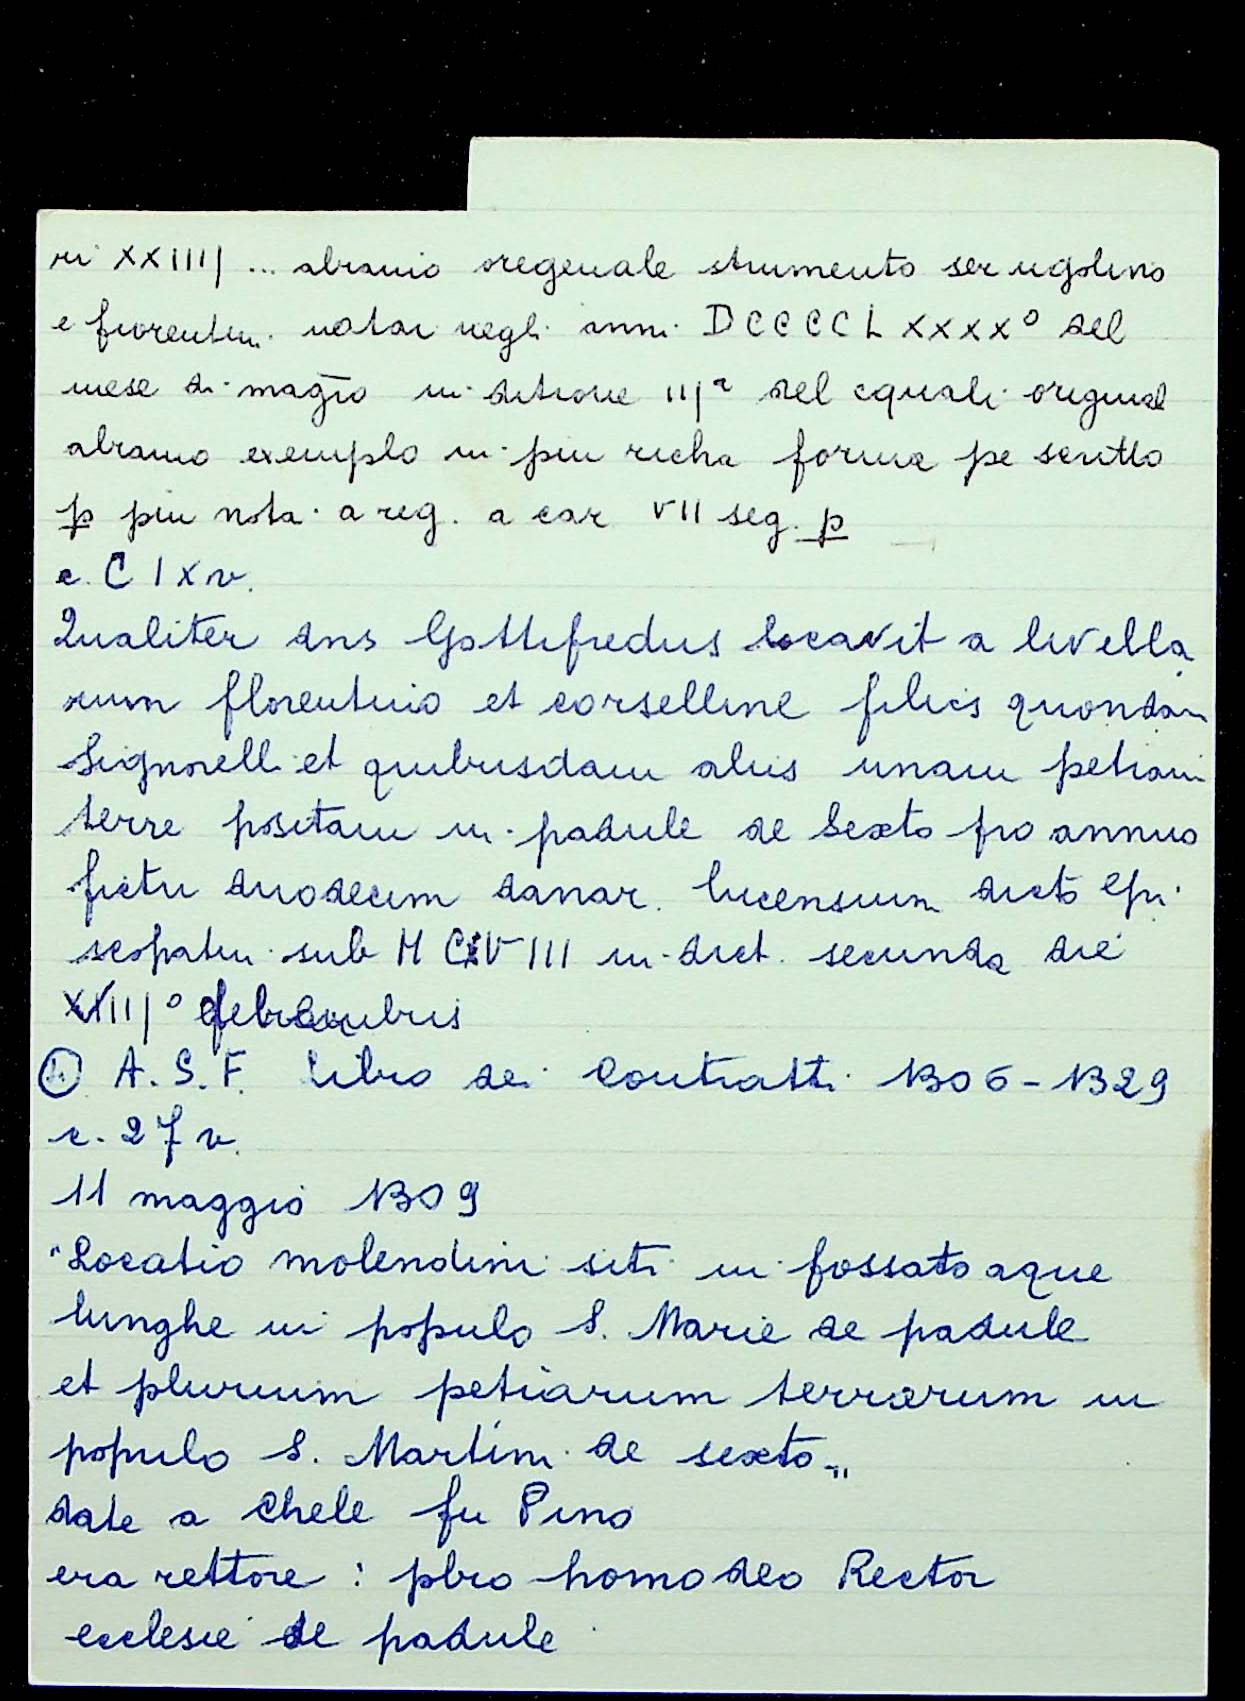 in XXIIII ... abramo oregenale strumento ser ugolino
e fiorentin. notai negli anni D C C C C L X X X X° del
mese di magio in ditione III a del equali original
abramo exemplo in piu richa forma pe scritto
p piu nota a reg. a car VII seg. p
c. C I X v.
Qualiter dns Gottifredus locavit a livella
rium florentino et corselline filiis quondam
Signorelli et quibusdam aliis unam petiam
terre positam in padule de Sexto pro annuo
fictu duodecim danar. lucensium dicto epi
scopatui sub M C V III indict. secunda die
XVIII°
A. S. F. Libro dei Contratti 1306-1329
c. 27 v.
11 maggio 1309
"Locatio molendini siti in fossato aque
lunghe in populo S. Marie de padule
et plurium petiarum terrarum in
populo S. Martini de sexto"
date a Chele fu Pino
era rettore : pbro homodeo Rector
ecclesie de padule